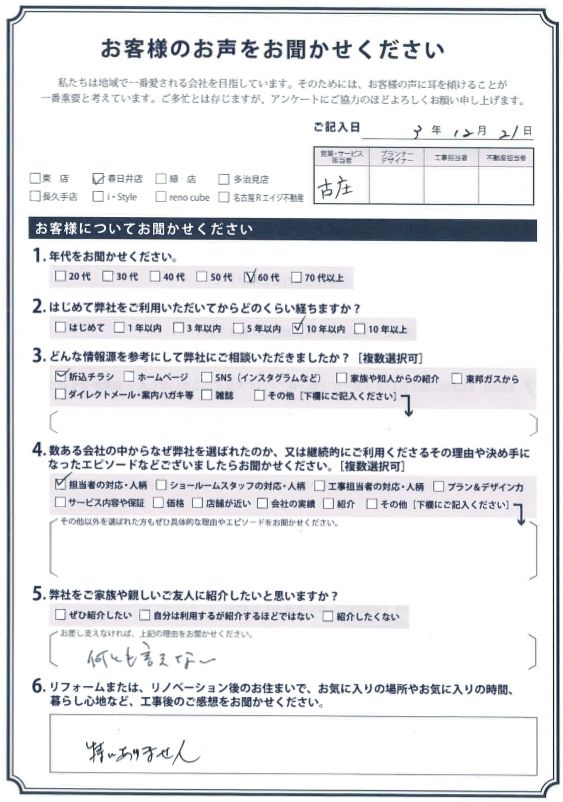 お客様のお声をお聞かせください
私たちは地域で一番愛される会社を目指しています。そのためには、お客様の声に耳を傾けることが
一番重要と考えています。ご多忙とは存じますが、アンケートにご協力のほどよろしくお願い申し上げます。
ご記入日 3 年 12 月 21 日
営業・サービス担当者 プランナーデザイナー 工事担当者 不動産担当者
古庄
□東 店 ☑春日井店 □緑 店 □多治見店
□長久手店 □i・Style □reno cube □名古屋Rエイジ不動産
お客様についてお聞かせください
1. 年代をお聞かせください。
□20代 □30代 □40代 □50代 ☑60代 □70代以上
2. はじめて弊社をご利用いただいてからどのくらい経ちますか？
□はじめて □1年以内 □3年以内 □5年以内 ☑10年以内 □10年以上
3. どんな情報源を参考にして弊社にご相談いただきましたか？［複数選択可］
☑折込チラシ □ホームページ □SNS（インスタグラムなど） □家族や知人からの紹介 □東邦ガスから
□ダイレクトメール・案内ハガキ等 □雑誌 □その他［下欄にご記入ください］
4. 数ある会社の中からなぜ弊社を選ばれたのか、又は継続的にご利用くださるその理由や決め手に
なったエピソードなどございましたらお聞かせください。［複数選択可］
☑担当者の対応・人柄 □ショールームスタッフの対応・人柄 □工事担当者の対応・人柄 □プラン＆デザイン力
□サービス内容や保証 □価格 □店舗が近い □会社の実績 □紹介 □その他［下欄にご記入ください］
その他以外を選ばれた方もぜひ具体的な理由やエピソードをお聞かせください。
5. 弊社をご家族や親しいご友人に紹介したいと思いますか？
□ぜひ紹介したい □自分は利用するが紹介するほどではない □紹介したくない
お差し支えなければ、上記の理由をお聞かせください。
何とも言えない
6. リフォームまたは、リノベーション後のお住まいで、お気に入りの場所やお気に入りの時間、
暮らし心地など、工事後のご感想をお聞かせください。
特にありません